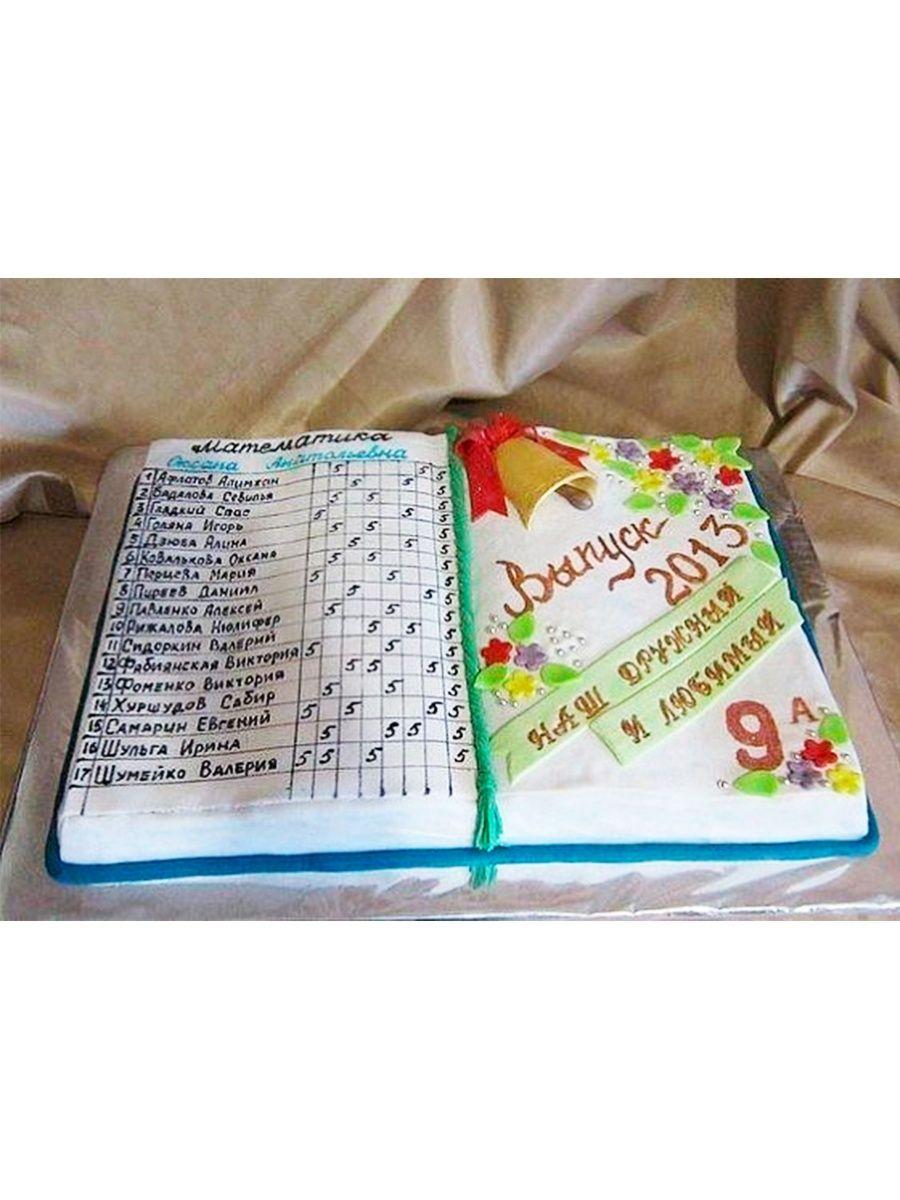 Математика
Оксана Анатольевна
1 Афлатов Алимхан 5 5 5 5
2 Бадалова Севилья 5 5 5
3 Гладкий Спас 5 5 5
4 Голяна Игорь 5 5 5
5 Дзюва Алина 5 5 5
6 Ковалькова Оксана 5 5 5
7 Перцева Мария 5 5 5
8 Пиреев Даниил 5 5 5
9 Павленко Алексей 5 5 5
10 Рыжалова Нюлифер 5 5 5
11 Сидоркин Валерий 5 5 5
12 Фабиянская Виктория 5 5 5
13 Фоменко Виктория 5 5 5
14 Хуршудов Сабир 5 5 5
15 Самарин Евгений 5 5 5 5
16 Шульга Ирина 5 5 5
17 Шумейко Валерия 5 5 5
Выпуск
2013
НАШ ДРУЖНЫЙ
И ЛЮБИМЫЙ
9 А